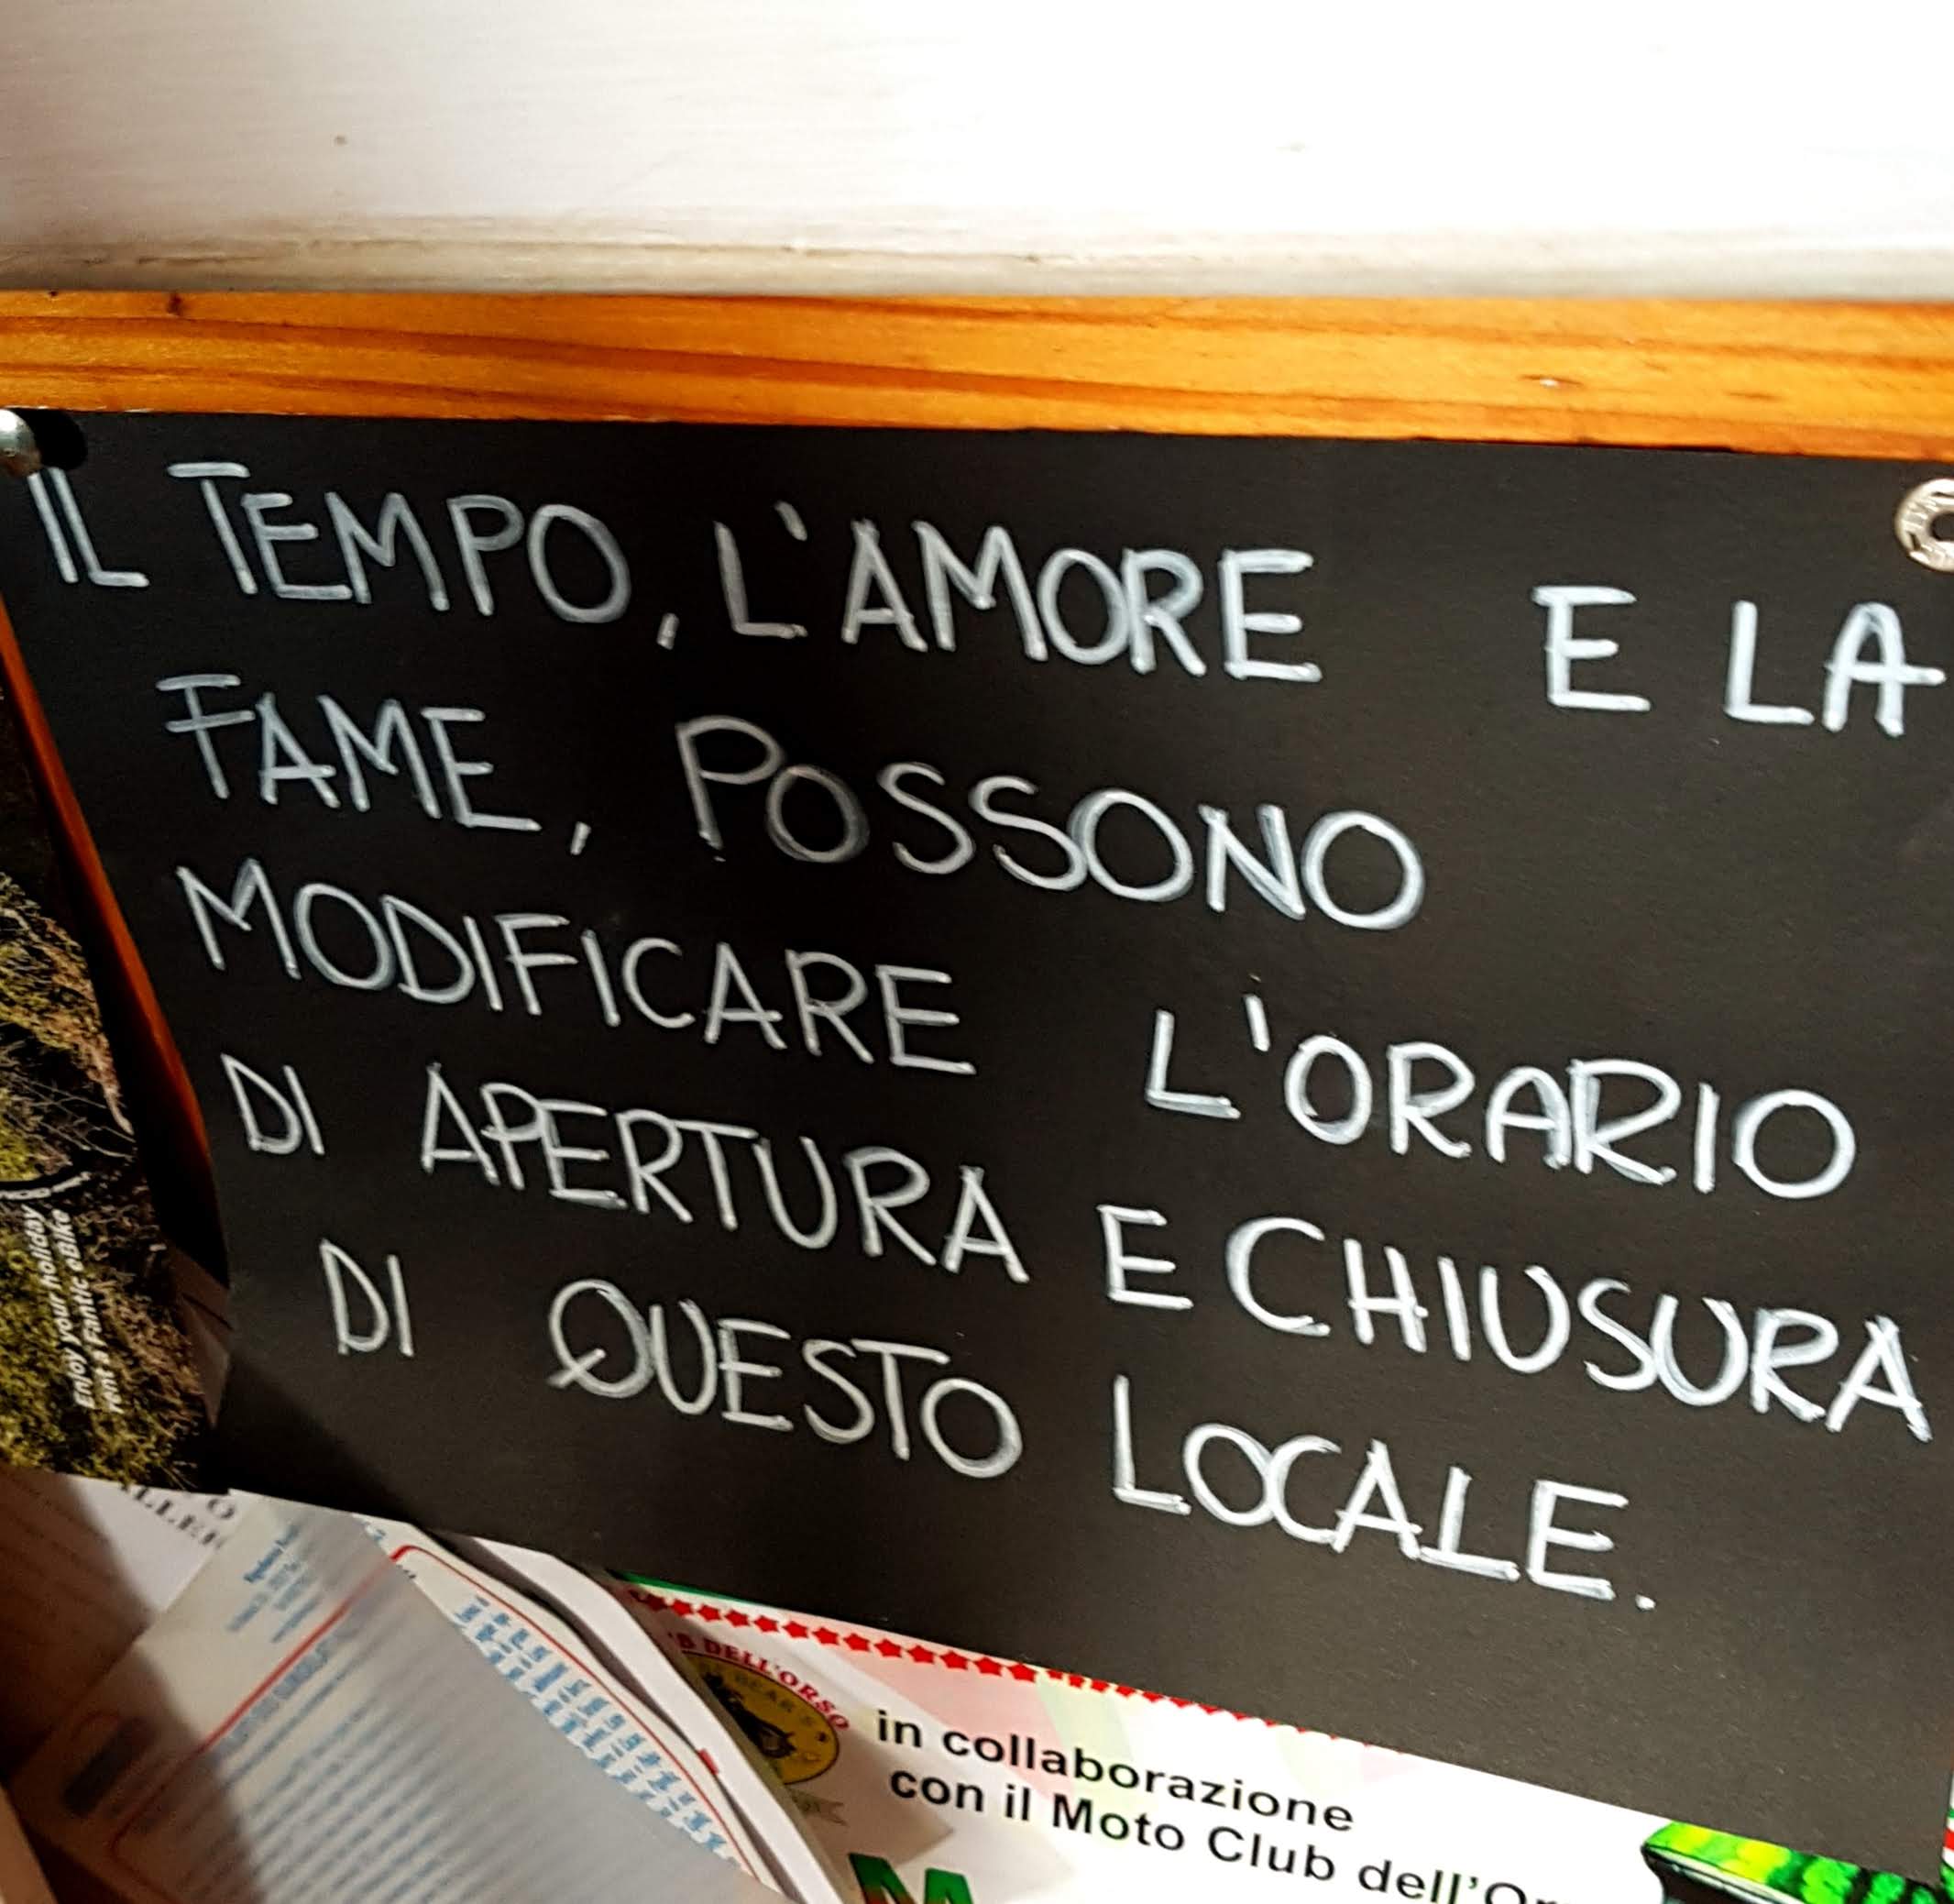 IL TEMPO, L'AMORE E LA
FAME, POSSONO
MODIFICARE L'ORARIO
DI APERTURA E CHIUSURA
DI QUESTO LOCALE.
Enjoy your holiday
rent a Fantic eBike
DELL'ORSO
in collaborazione
con il Moto Club